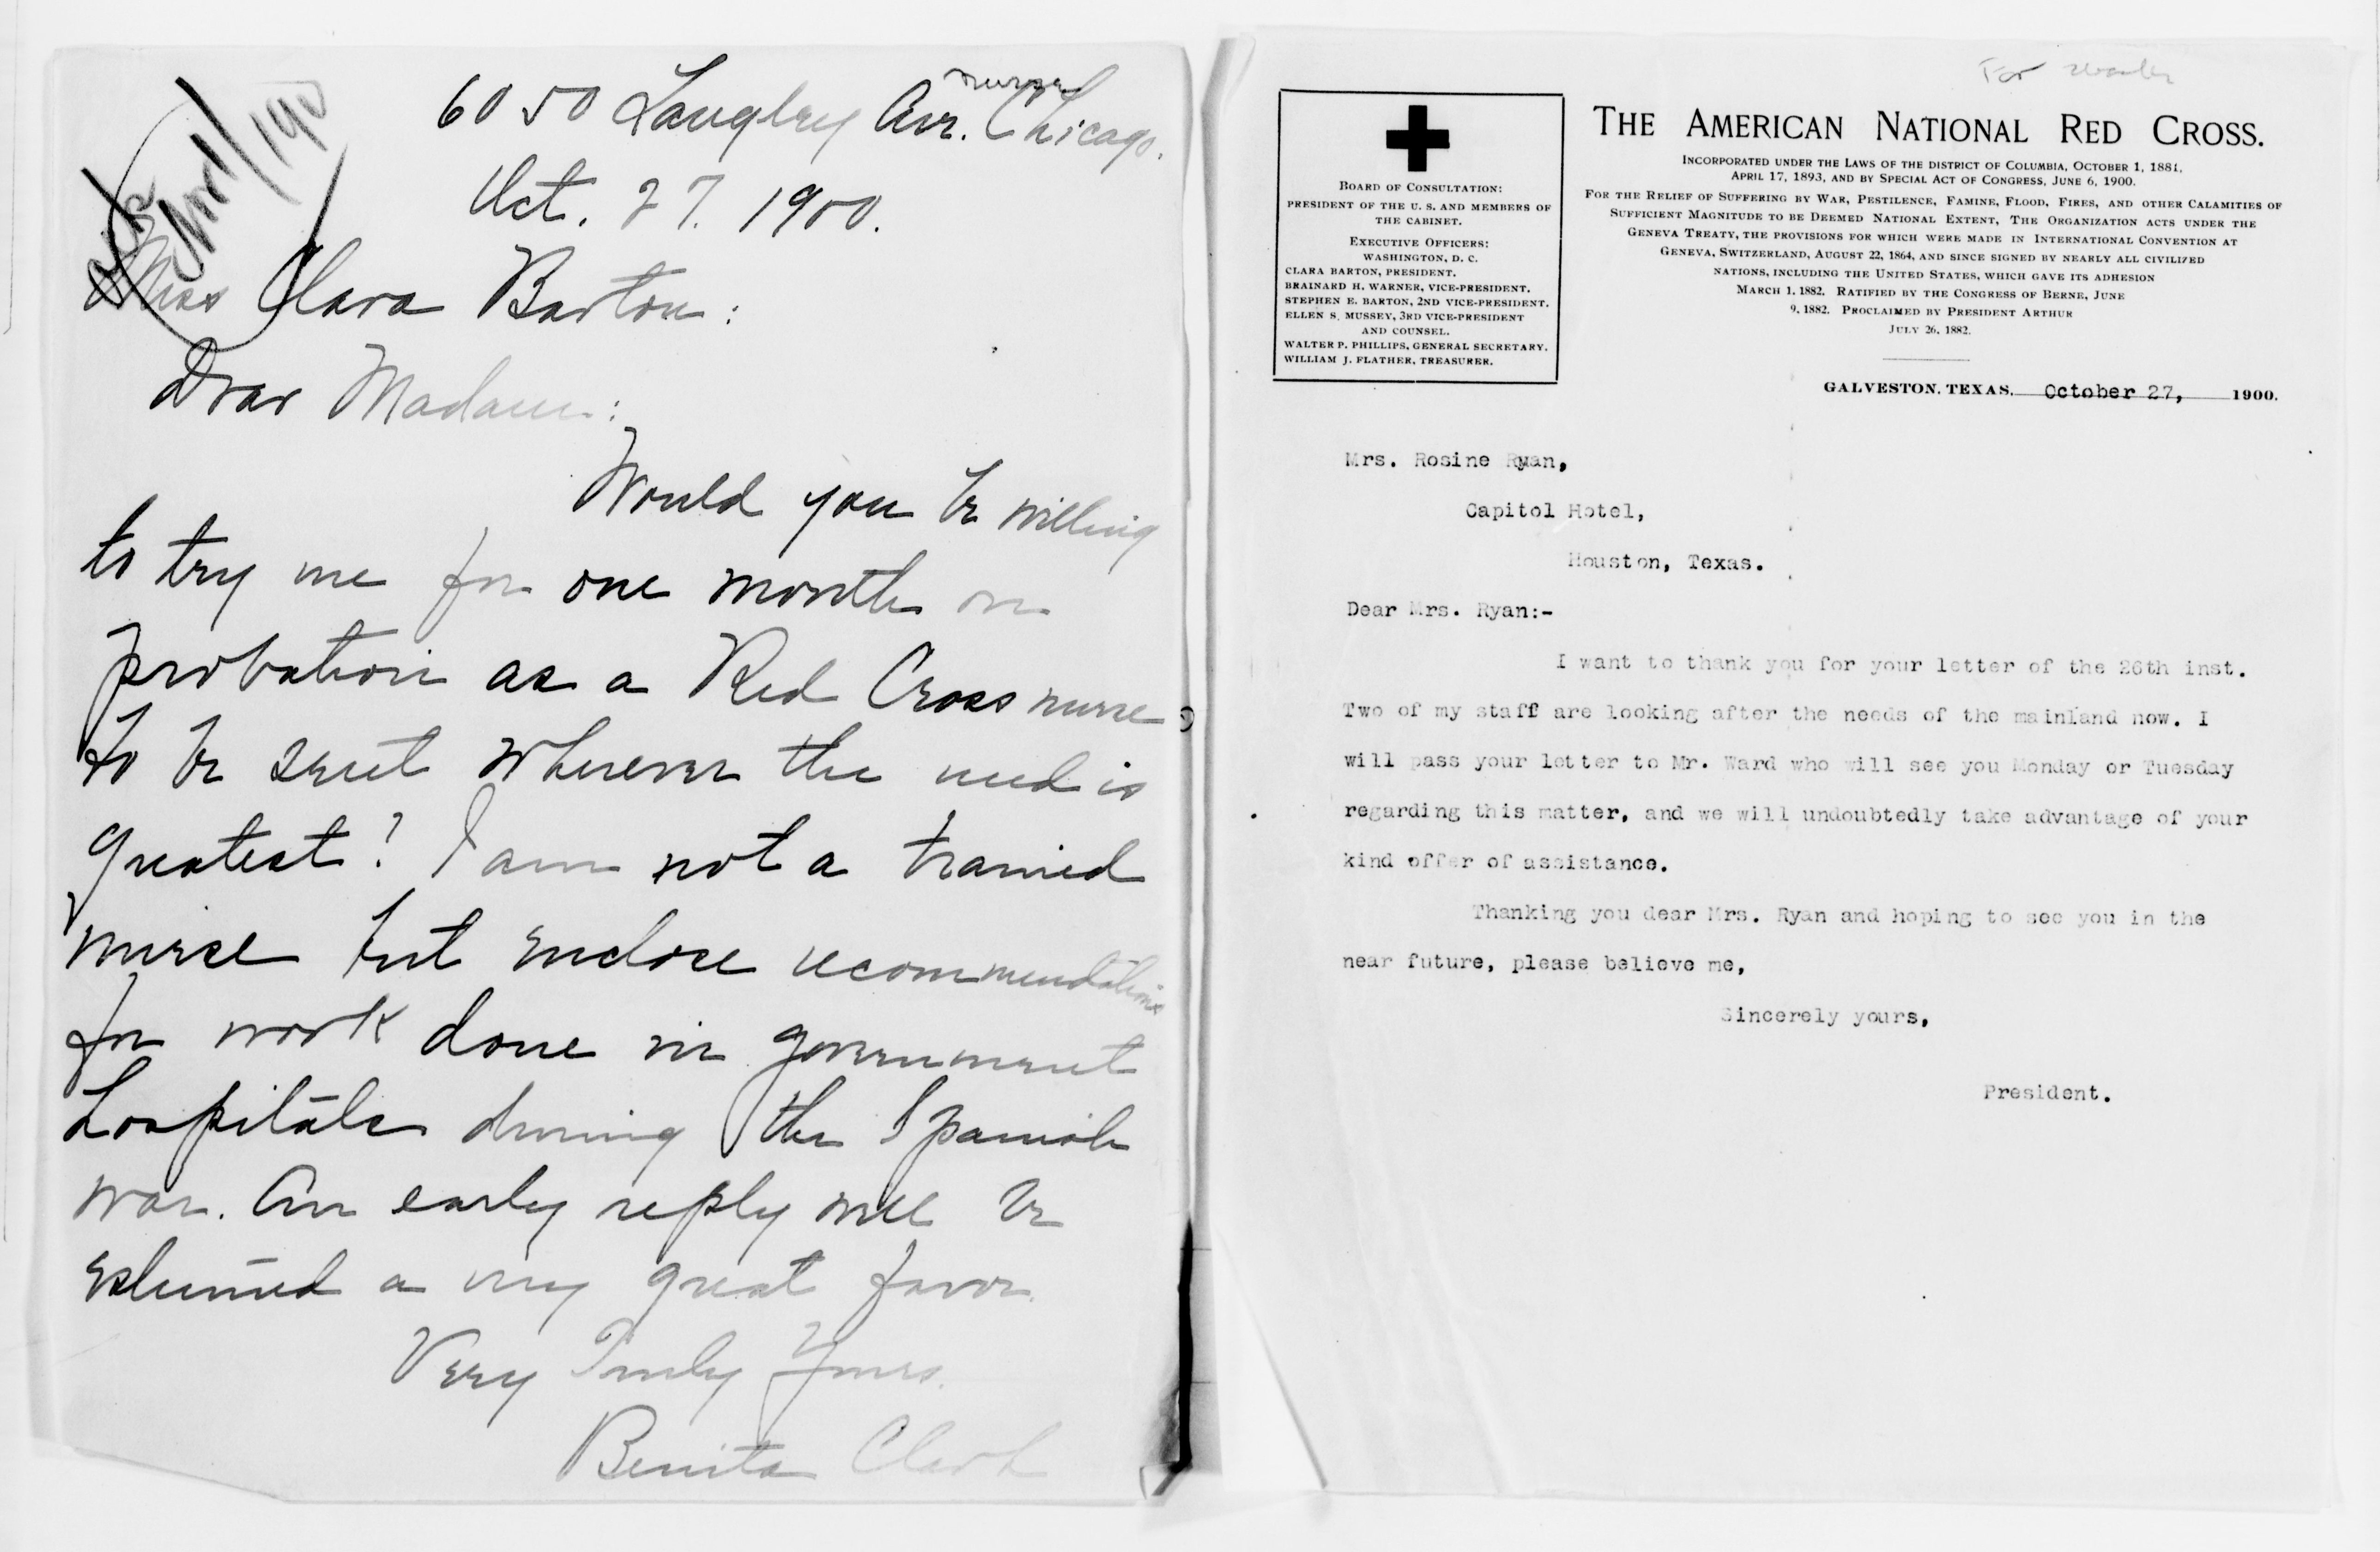 nurse
6050 Langley Ave. Chicago.
Oct. 27. 1900.
Ack
Nov 1/1900
Miss Clara Barton:
Dear Madam:
Would you be willing
to try me for one month on
probation as a Red Cross nurse
to be sent wherever the need is
greatest? I am not a trained
nurse but enclose recommendations
for work done in government
hospitals during the Spanish
war. An early reply will be
esteemed a very great favor.
Very Truly Yours.
Benita Clark
For
THE AMERICAN NATIONAL RED CROSS.
INCORPORATED UNDER THE LAWS OF THE DISTRICT OF COLUMBIA, OCTOBER 1, 1881,
APRIL 17, 1893, AND BY SPECIAL ACT OF CONGRESS, JUNE 6, 1900.
FOR THE RELIEF OF SUFFERING BY WAR, PESTILENCE, FAMINE, FLOOD, FIRES, AND OTHER CALAMITIES OF
SUFFICIENT MAGNITUDE TO BE DEEMED NATIONAL EXTENT, THE ORGANIZATION ACTS UNDER THE
GENEVA TREATY, THE PROVISIONS FOR WHICH WERE MADE IN INTERNATIONAL CONVENTION AT
GENEVA, SWITZERLAND, AUGUST 22, 1864, AND SINCE SIGNED BY NEARLY ALL CIVILIZED
NATIONS, INCLUDING THE UNITED STATES, WHICH GAVE ITS ADHESION
MARCH 1, 1882. RATIFIED BY THE CONGRESS OF BERNE, JUNE
9, 1882. PROCLAIMED BY PRESIDENT ARTHUR
JULY 26, 1882.
BOARD OF CONSULTATION:
PRESIDENT OF THE U. S. AND MEMBERS OF
THE CABINET.
EXECUTIVE OFFICERS:
WASHINGTON, D. C.
CLARA BARTON, PRESIDENT.
BRAINARD H. WARNER, VICE-PRESIDENT.
STEPHEN E. BARTON, 2ND VICE-PRESIDENT.
ELLEN S. MUSSEY, 3RD VICE-PRESIDENT
AND COUNSEL.
WALTER P. PHILLIPS, GENERAL SECRETARY.
WILLIAM J. FLATHER, TREASURER.
GALVESTON, TEXAS, October 27, 1900.
Mrs. Rosine Ryan,
Capitol Hotel,
Houston, Texas.
Dear Mrs. Ryan:-
I want to thank you for your letter of the 26th inst.
Two of my staff are looking after the needs of the mainland now. I
will pass your letter to Mr. Ward who will see you Monday or Tuesday
regarding this matter, and we will undoubtedly take advantage of your
kind offer of assistance.
Thanking you dear Mrs. Ryan and hoping to see you in the
near future, please believe me,
Sincerely yours,
President.